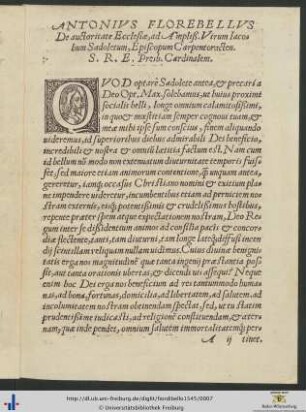 ANTONIVS FLOREBELLVS
De auctoritate Ecclesiæ, ad Ampliß. Virum Iaco
bum Sadoletum, Episcopum Carpentoracten.
S. R. E. Presb. Cardinalem.
QVOD optare Sadolete antea, & precari a
Deo Opt. Max. solebamus, ut huius proximi
socialis belli, longe omnium calamitosissimi,
in quo & mœstiam semper cognoui tuam, &
meæ mihi ipse sum conscius, finem aliquando
uideremus, id superioribus diebus admirabili Dei beneficio,
incredibili & nostra & omniũ lætitia factum est. Nam cum
ad bellum nõ modo non extenuatum diuturnitate temporis fuis/
set, sed maiore etiam animorum contentione, q̃ unquam antea,
gereretur, iamq; occasus Christiano nomini & exitium plane
impendere uideretur, incumbentibus etiam ad perniciem no
stram externis, eisq; potentissimis & crudelissimis hostibus,
repente præter spem atque expectationem nostram, Deo Re
gum inter se dissidentium animos ad consilia pacis & concor
diæ flectente, tanti, tam diuturni, tam longe lateq; diffusi incen
dij scintillam reliquam nullam uidimus. Cuius diuinæ benigni
tatis erga nos magnitudinẽ quæ tanta ingenij præstantia poss
sit, aut tanta orationis ubertas, & dicendi uis assequi? Neque
enim hoc Dei erga nos beneficium ad res tantummodo huma
nas, ad bona, fortunas, domicilia, ad libertatem, ad salutem, ad
incolumitatem nostram obeundam spectat, sed, ut tu statim
prudentissime iudicasti, ad religionẽ constituendam, & æter
nam, quæ inde pendet, omnium salutem immortalitatemq; per
A ij tinet.
http://dl.ub.uni-freiburg.de/diglit/floridbello1545/0007
© Universitätsbibliothek Freiburg
gefördert durch
Baden-Württemberg